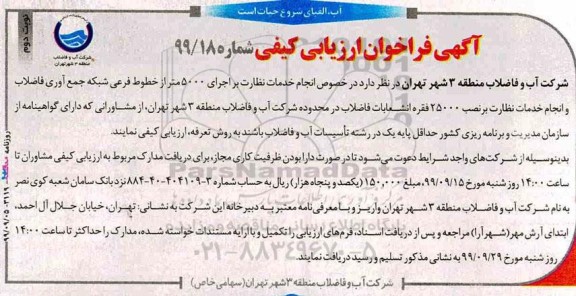 آب، الفبای شروع حیات است
نوبت دوم
آگهی فراخوان ارزیابی کیفی شماره ۹۹/۱۸۵
شرکت آب و فاضلاب
منطقه ۳ شهر تهران
شرکت آب و فاضلاب منطقه ۳ شهر تهران در نظر دارد در خصوص انجام خدمات نظارت بر اجرای ۵۰۰۰ متر از خطوط فرعی شبکه جمع آوری فاضلاب
و انجام خدمات نظارت بر نصب ۲۵۰۰۰ فقره انشعابات فاضلاب در محدوده شرکت آب و فاضلاب منطقه ۳ شهر تهران، از مشاورانی که دارای گواهینامه از
سازمان مدیریت و برنامه ریزی کشور حداقل پایه یک در رشته تأسیسات آب و فاضلاب باشند به روش تعرفه، ارزیابی کیفی نمایند.
بدینوسیله از شرکت‌های واجد شرایط دعوت می‌شود تا در صورت دارا بودن ظرفیت کاری مجاز، برای دریافت مدارک مربوط به ارزیابی کیفی مشاوران تا
ساعت ۱۴:۰۰ روز شنبه مورخ ۹۹/۰۹/۱۵، مبلغ ۱۵۰,۰۰۰ (یکصد و پنجاه هزار) ریال به حساب شماره ۳-۴۰۴۱۰۹-۴۰-۸۸۴ نزد بانک سامان شعبه کوی نصر
به نام شرکت آب و فاضلاب منطقه ۳ شهر تهران واریز و با معرفی نامه معتبر به دبیرخانه این شرکت به نشانی: تهران، خیابان جلال آل احمد،
ابتدای آرش مهر (شهرآرا) مراجعه و پس از دریافت اسناد، فرم‌های ارزیابی را تکمیل و با ارایه مستندات خواسته شده، مدارک را حداکثر تا ساعت ۱۴:۰۰
روز شنبه مورخ ۹۹/۰۹/۲۹ به نشانی مذکور تسلیم و رسید دریافت نمایند.
شرکت آب و فاضلاب منطقه ۳ شهر تهران (سهامی خاص)
ParsNamadData
۰۲۱-۸۸۳۴۹۶۷۰-۵
روزنامه
۹۹/۰۹/۰۵-۳۱۱۹